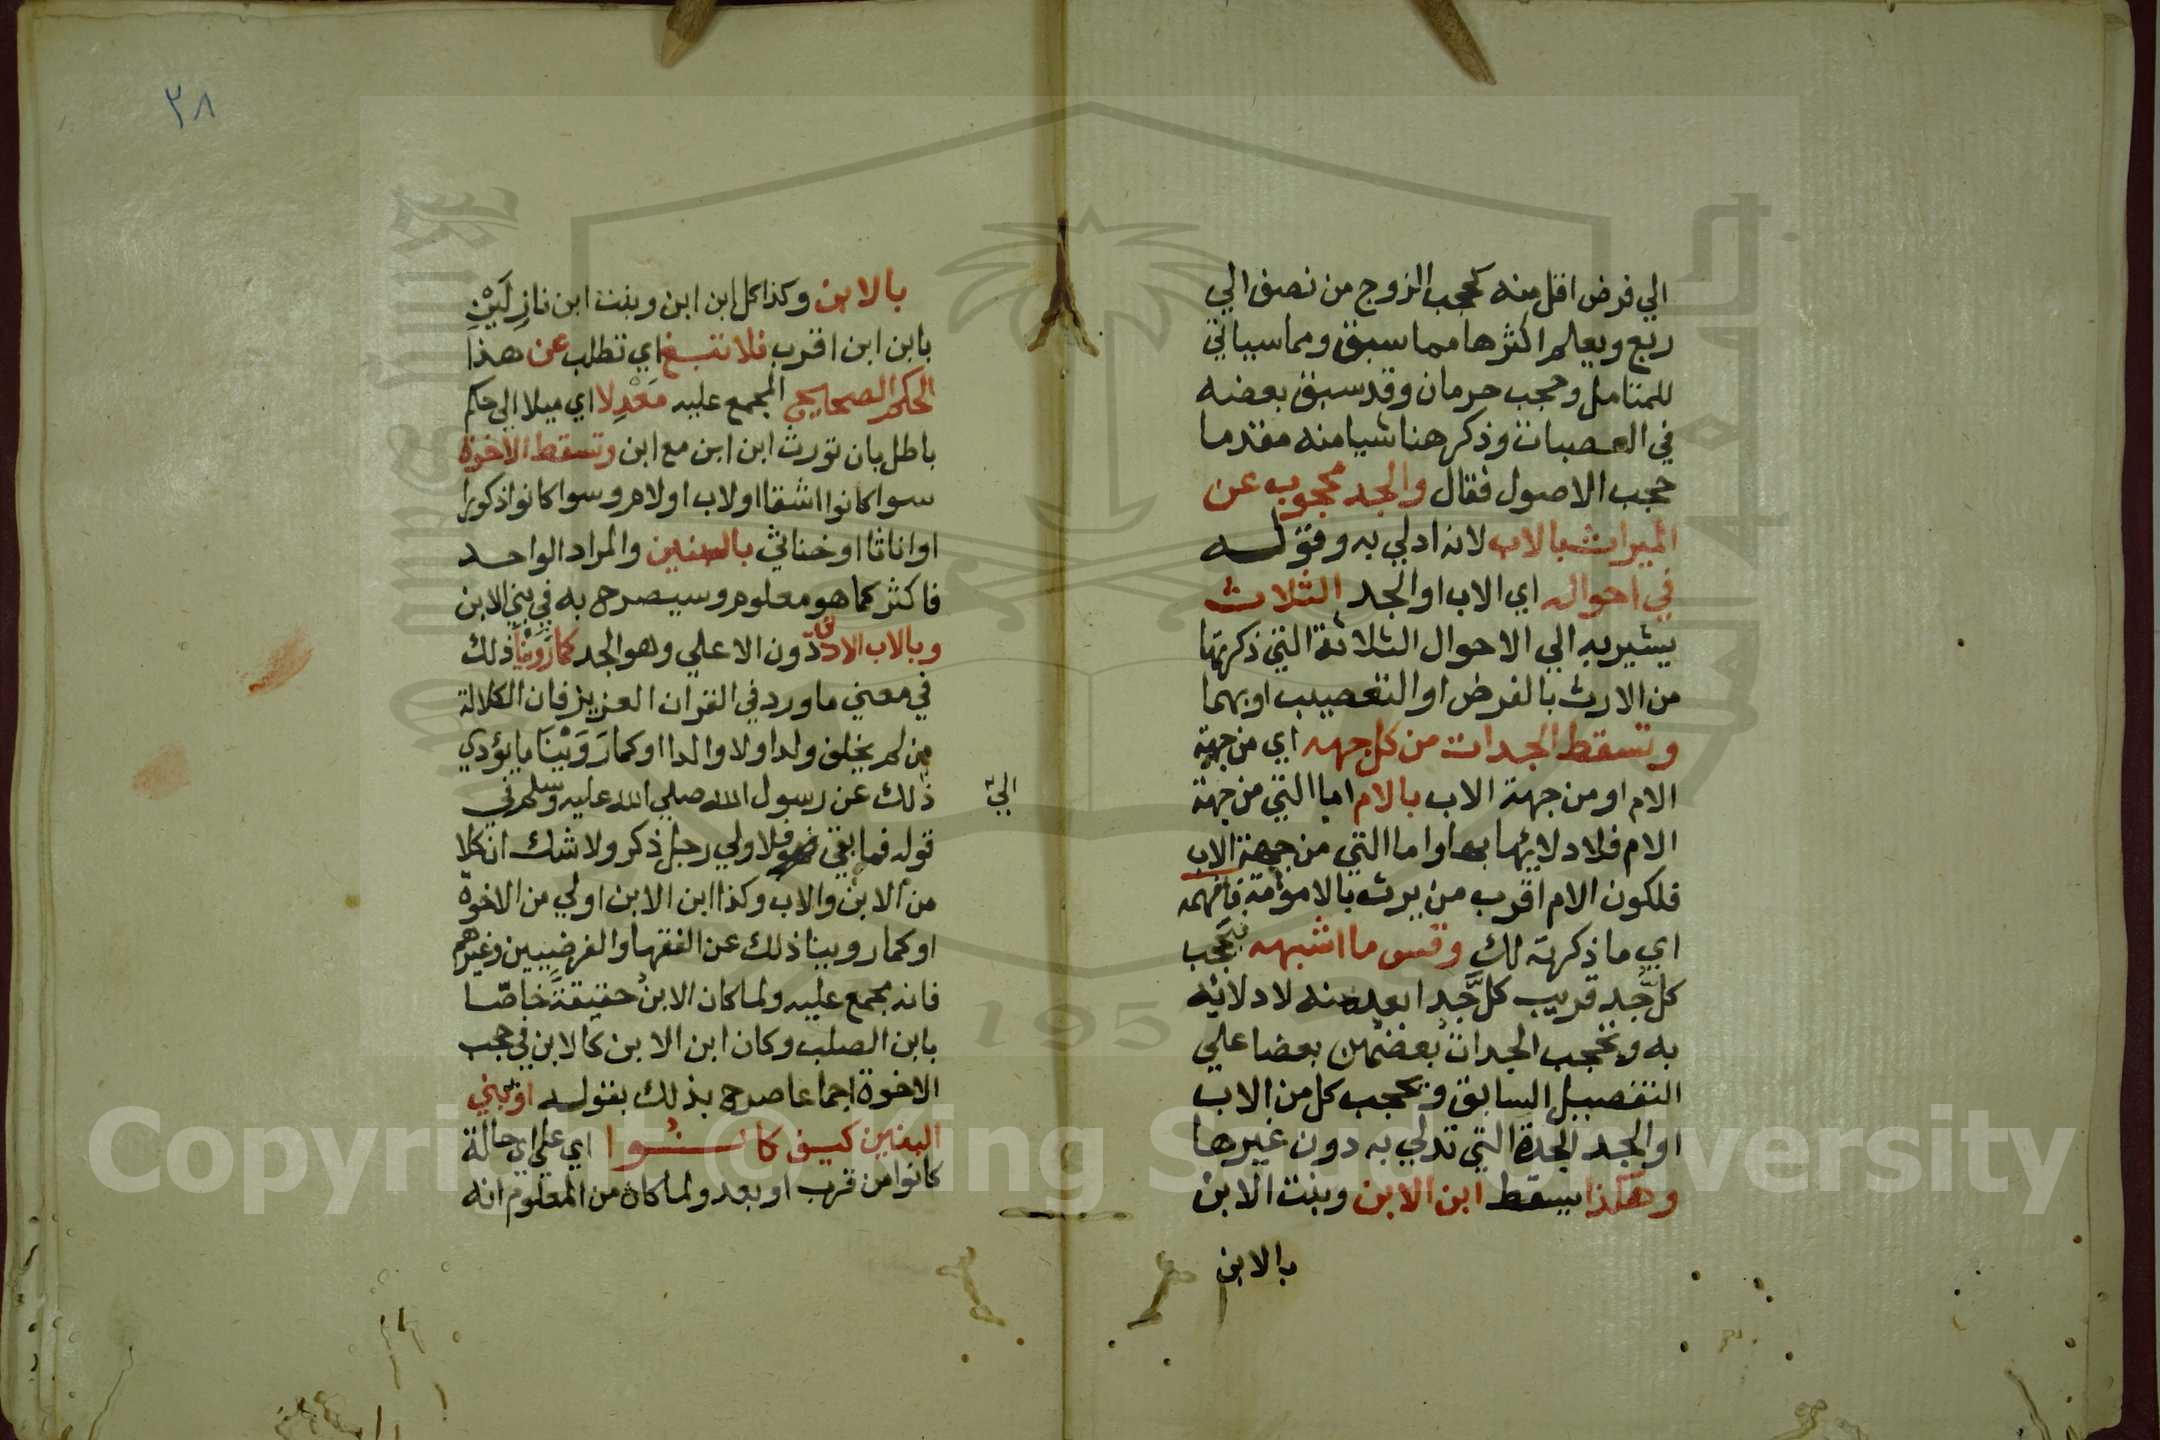 الي فرض اقل منه كحجب الزوج من نصف الي
ربع ويعلم اكثرها مما سبق ومما سياتي
للمتامل وحجب حرمان وقد سبق بعضه
في العصبات وذكر هنا شيا منه مقدما
حجب الاصول فقال والجد محجوب عن
الميراث بالاب لانه ادلي به وقوله
في احواله اي الاب او الجد الثلاث
يشير به الي الاحوال الثلاثة التي ذكرتها
من الارث بالفرض او التعصيب او بهما
وتسقط الجدات من كل جهه اي من جهة
الام او من جهة الاب بالام اما التي من جهة
الام فلادلايها بها واما التي من جهة الاب
فلكون الام اقرب من يرث بالامومة فافهمه
اي ما ذكرته لك وقس ما اشبهه فيحجب
كل جد قريب كل جد ابعد منه لادلائه
به وتحجب الجدات بعضهن بعضا علي
التفصيل السابق ويحجب كل من الاب
او الجد الجدة التي تدلي به دون غيرها
وهكذا يسقط ابن الابن وبنت الابن
بالابن
٣٨
بالابن وكذا كل ابن ابن وبنت ابن نازِلَيْنِ
بابن ابن اقرب فلا تبغ اي تطلب عن هذا
الحكم الصحيح المجمع عليه مَعْدِلا اي ميلا الي حكم
باطل بان تورث ابن ابن مع ابن وتسقط الاخوة
سوا كانوا اشقا او لاب او لام وسوا كانوا ذكورا
او اناثا او خناثي بالبنين والمراد الواحد
فاكثر كما هو معلوم وسيصرح به في بني الابن
وبالاب الادني دون الاعلي وهو الجد كما رَوَيْنا ذلك
في معني ما ورد في القران العزيز فان الكلالة
من لم يخلف ولدا ولا والدا او كما رَوَيْنَا ما يؤدي
الي
ذلك عن رسول الله صلي الله عليه وسلم في
قوله فما بقي فهو فلاولي رجل ذكر ولا شك ان كلا
من الابن والاب وكذا ابن الابن اولي من الاخوة
او كما روينا ذلك عن الفقها والفرضيين وغيرهم
فانه مجمع عليه ولما كان الابن حقيقة خاصًّا
بابن الصلب وكان ابن الابن كالابن في حجب
الاخوة اجماعا صرح بذلك بقوله او ببني
البنين كيف كانُوا اي علي اي حالة
كانوا من قرب او بعد ولما كان من المعلوم انه
Copyright © King Saud University
195